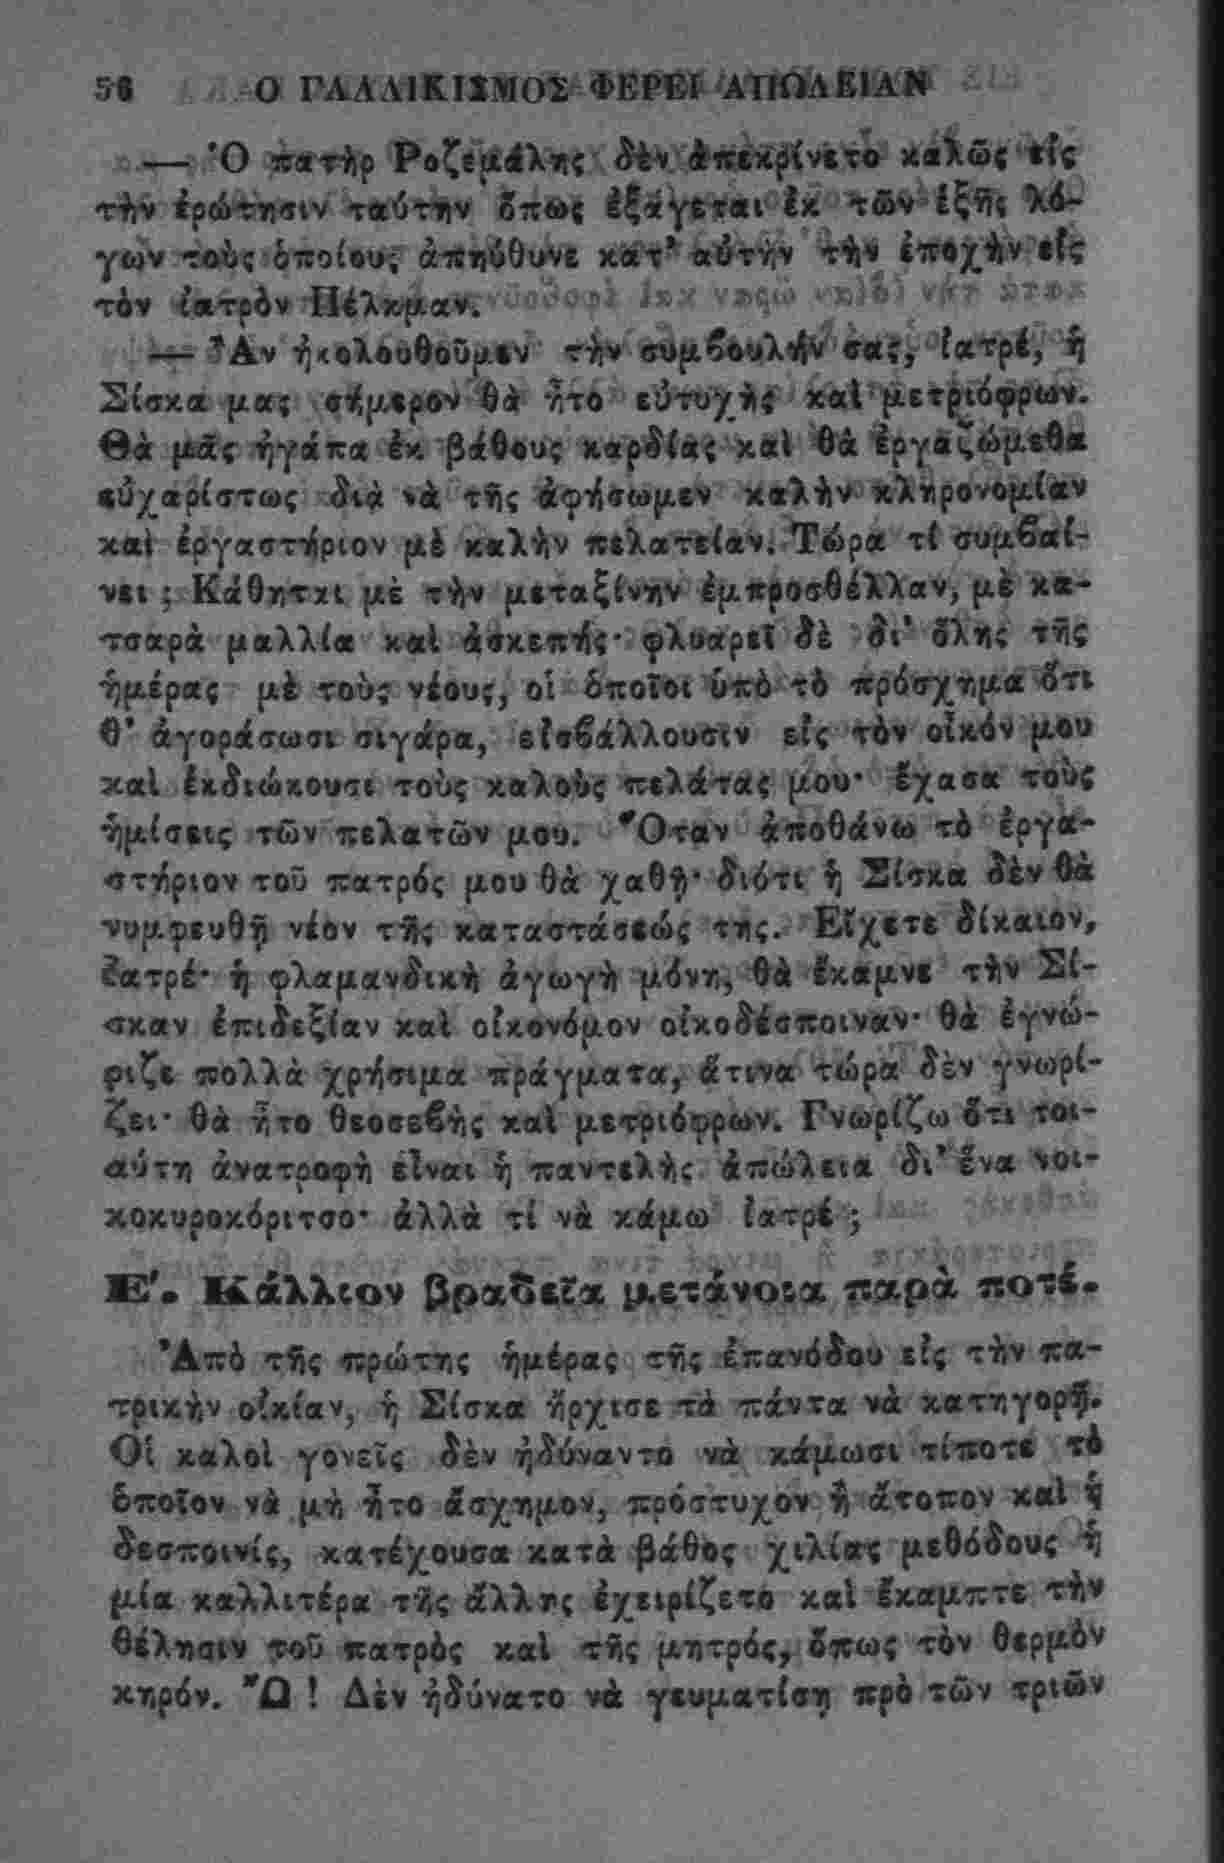 56 Ο ΓΑΛΛΙΚΙΣΜΟΣ ΦΕΡΕΙ ΑΠΩΛΕΙΑΝ
— Ὁ πατὴρ Ροζεμάλης δὲν ἀπεκρίνετο καλῶς εἰς
τὴν ἐρώτησιν ταύτην ὅπως ἐξάγεται ἐκ τῶν ἑξῆς λό-
γων τοὺς ὁποίους ἀπηύθυνε κατ’ αὐτὴν τὴν ἐποχὴν εἰς
τὸν ἰατρὸν Πέλκμαν.
— Ἂν ἠκολουθοῦμεν τὴν συμβουλήν σας, ἰατρέ, ἡ
Σίσκα μας σήμερον θὰ ἦτο εὐτυχὴς καὶ μετριόφρων.
Θὰ μᾶς ἠγάπα ἐκ βάθους καρδίας καὶ θὰ ἐργαζώμεθα
εὐχαρίστως διὰ νὰ τῆς ἀφήσωμεν καλὴν κληρονομίαν
καὶ ἐργαστήριον μὲ καλὴν πελατείαν. Τώρα τί συμβαί-
νει ; Κάθηται μὲ τὴν μεταξίνην ἐμπροσθέλλαν, μὲ κα-
τσαρὰ μαλλία καὶ ἀσκεπής· φλυαρεῖ δὲ δι’ ὅλης τῆς
ἡμέρας μὲ τοὺς νέους, οἱ ὁποῖοι ὑπὸ τὸ πρόσχημα ὅτι
θ’ ἀγοράσωσι σιγάρα, εἰσβάλλουσιν εἰς τὸν οἶκόν μου
καὶ ἐκδιώκουσι τοὺς καλοὺς πελάτας μου· ἔχασα τοὺς
ἡμίσεις τῶν πελατῶν μου. Ὅταν ἀποθάνω τὸ ἐργα-
στήριον τοῦ πατρός μου θὰ χαθῇ· διότι ἡ Σίσκα δὲν θὰ
νυμφευθῇ νέον τῆς καταστάσεώς της. Εἴχετε δίκαιον,
ἰατρέ· ἡ φλαμανδικὴ ἀγωγὴ μόνη, θὰ ἔκαμνε τὴν Σί-
σκαν ἐπιδεξίαν καὶ οἰκονόμον οἰκοδέσποιναν· θὰ ἐγνώ-
ριζε πολλὰ χρήσιμα πράγματα, ἅτινα τώρα δὲν γνωρί-
ζει· θὰ ἦτο θεοσεβὴς καὶ μετριόφρων. Γνωρίζω ὅτι τοι-
αύτη ἀνατροφὴ εἶναι ἡ παντελὴς ἀπώλεια δι’ ἕνα νοι-
κοκυροκόριτσο· ἀλλὰ τί νὰ κάμω ἰατρέ ;
Ε΄. Κάλλιον βραδεῖα μετάνοια παρὰ ποτέ.
Ἀπὸ τῆς πρώτης ἡμέρας τῆς ἐπανόδου εἰς τὴν πα-
τρικὴν οἰκίαν, ἡ Σίσκα ἤρχισε τὰ πάντα νὰ κατηγορῇ.
Οἱ καλοὶ γονεῖς δὲν ἠδύναντο νὰ κάμωσι τίποτε τὸ
ὁποῖον νὰ μὴ ἦτο ἄσχημον, πρόστυχον ἢ ἄτοπον καὶ ἡ
δεσποινίς, κατέχουσα κατὰ βάθος χιλίας μεθόδους ἡ
μία καλλιτέρα τῆς ἄλλης ἐχειρίζετο καὶ ἔκαμπτε τὴν
θέλησιν τοῦ πατρὸς καὶ τῆς μητρός, ὅπως τὸν θερμὸν
κηρόν. Ὢ ! Δὲν ἠδύνατο νὰ γευματίσῃ πρὸ τῶν τριῶν